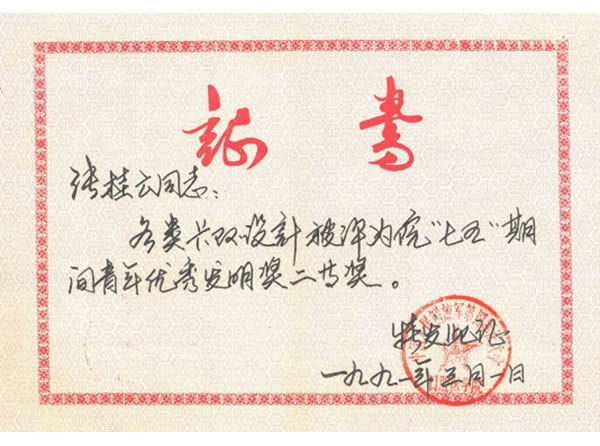 证书
张桂云同志：
各类卡规设计被评为院“七五”期
间青年优秀发明奖二等奖。
特发此证
一九九一年三月一日